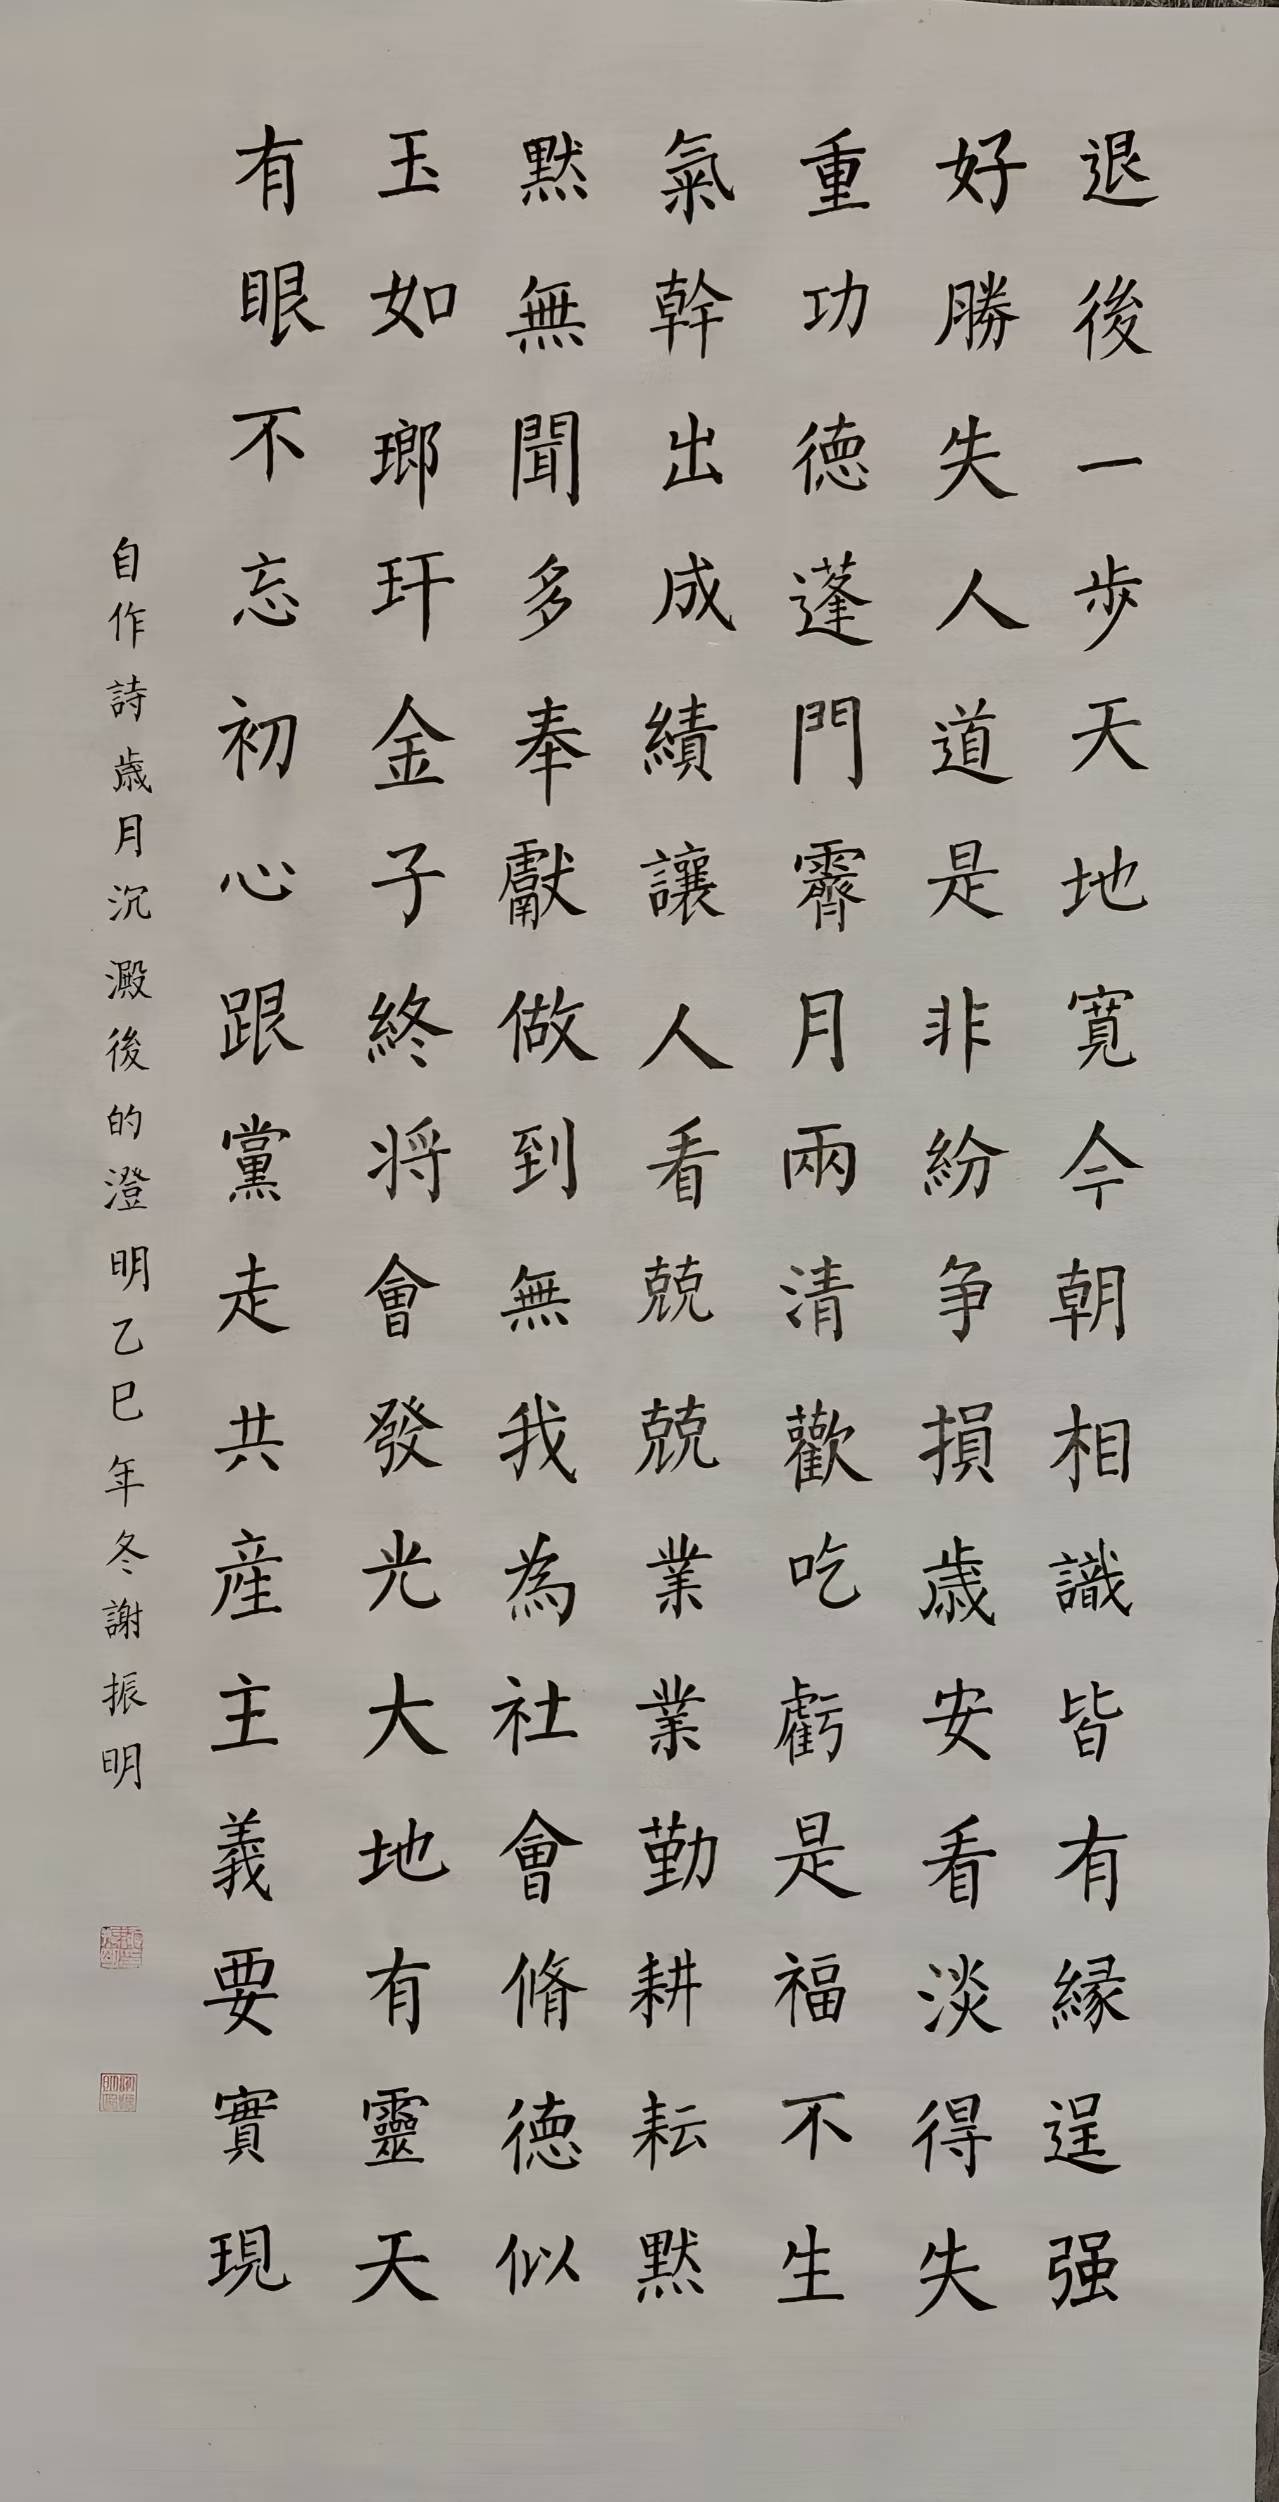 退後一步天地寬今朝相識皆有緣逞强
好勝失人道是非紛争損歲安看淡得失
重功德蓬門霽月兩清歡吃虧是福不生
氣幹出成績讓人看兢兢業業勤耕耘默
默無聞多奉獻做到無我為社會脩德似
玉如瑯玕金子終將會發光大地有靈天
有眼不忘初心跟黨走共産主義要實現
自作詩歲月沉澱後的澄明乙巳年冬謝振明